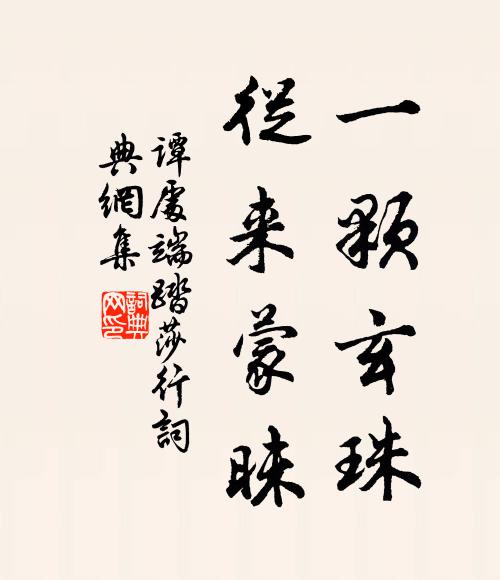 一顆玄珠
從来蒙昧
譚處端踏莎行詞
典網集
詞典網印